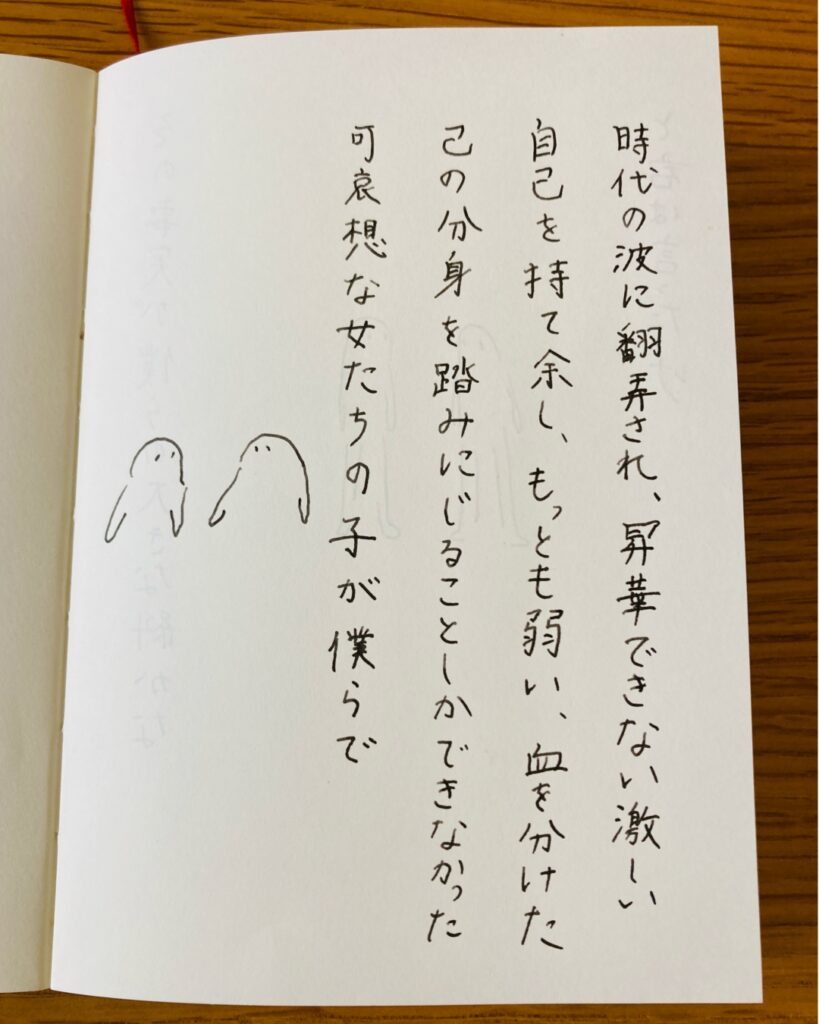 時代の波に翻弄され、昇華できない激しい
自己を持て余し、もっとも弱い、血を分けた
己の分身を踏みにじることしかできなかった
可哀想な女たちの子が僕らで